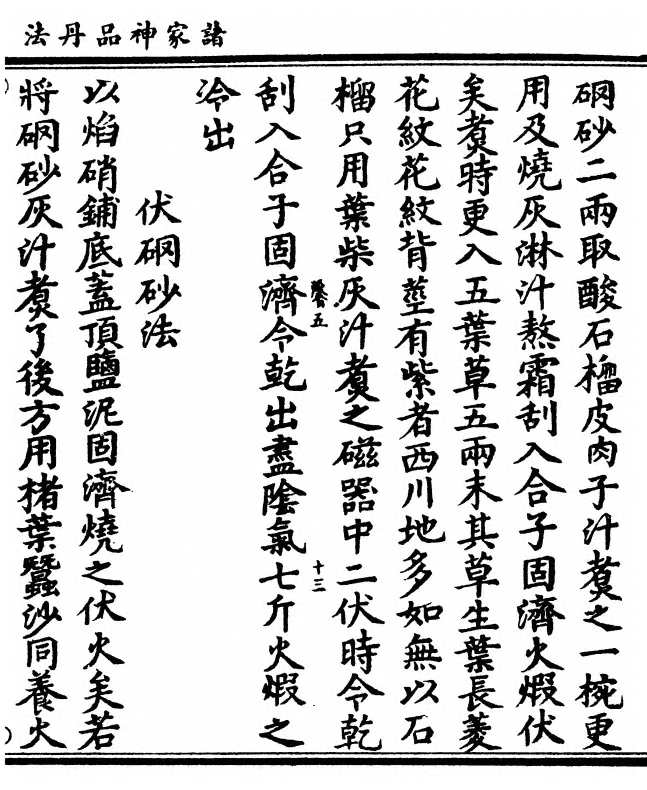 諸家神品丹法
硇砂二兩取酸石榴皮肉子汁煑之一椀更
用及燒灰淋汁熬霜刮入合子固濟火煆伏
矣煑時更入五葉草五兩末其草生葉長菱
花紋花紋背莖有紫者西川地多如無以石
榴只用葉柴灰汁煑之磁器中二伏時令乾
刮入合子固濟令乾出盡陰氣七斤火煆之
五
十三
冷出
伏硇砂法
以焰硝鋪底蓋頂鹽泥固濟燒之伏火矣若
將硇砂灰汁煑了後方用楮葉蠶沙同養火